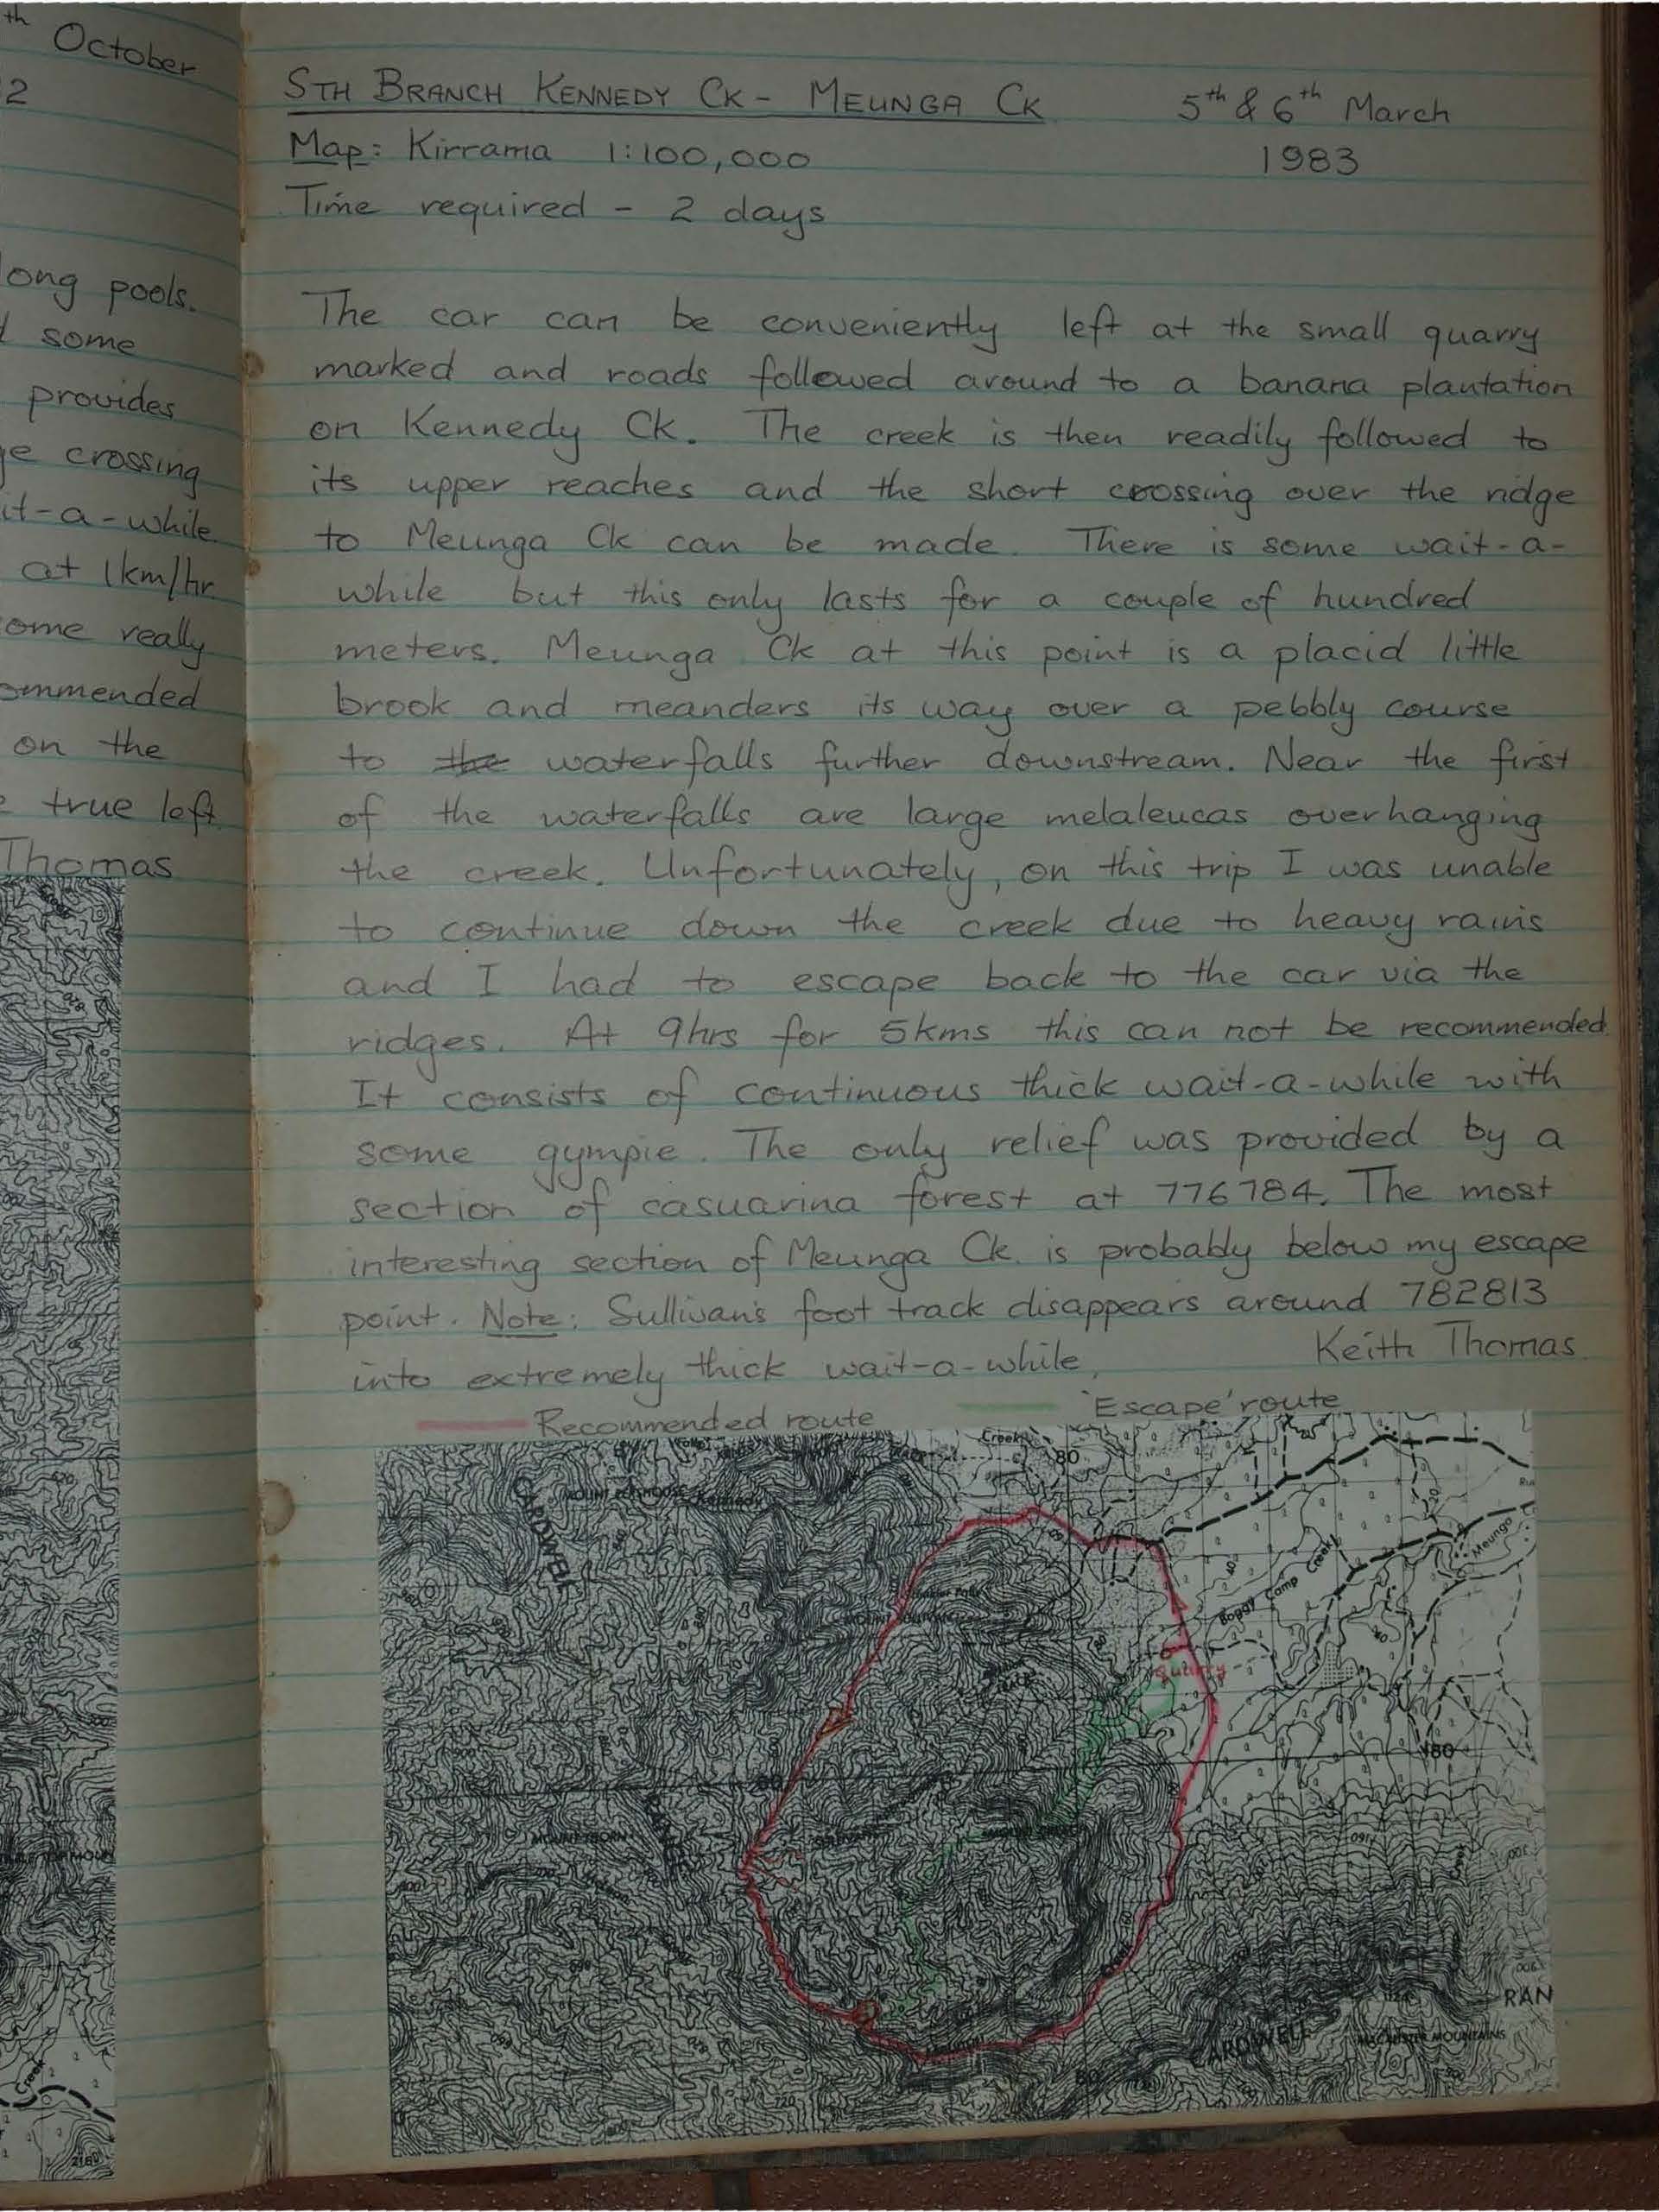 th October
2
long pools.
some
provides
crossing
it-a-while
at 1km/hr
ome really
ommended
on the
true left
Thomas
STH BRANCH KENNEDY CK - MEUNGA CK
5th & 6th March
1983
Map: Kirrama 1:100,000
Time required - 2 days
The car can be conveniently left at the small quarry
marked and roads followed around to a banana plantation
on Kennedy Ck. The creek is then readily followed to
its upper reaches and the short crossing over the ridge
to Meunga Ck can be made. There is some wait-a-
while but this only lasts for a couple of hundred
meters. Meunga Ck at this point is a placid little
brook and meanders its way over a pebbly course
to the waterfalls further downstream. Near the first
of the waterfalls are large melaleucas overhanging
the creek. Unfortunately, on this trip I was unable
to continue down the creek due to heavy rains
and I had to escape back to the car via the
ridges. At 9hrs for 5kms this can not be recommended.
It consists of continuous thick wait-a-while with
some gympie. The only relief was provided by a
section of casuarina forest at 776784. The most
interesting section of Meunga Ck. is probably below my escape
point. Note: Sullivan's foot track disappears around 782813
into extremely thick wait-a-while.
Keith Thomas
Recommended route
'Escape' route
Creek
80
CARDWELL
Boggy Camp Creek
Meunga
Quarry
80
CARDWELL
RAN
MACALISTER MOUNTAINS
80
720
Creek